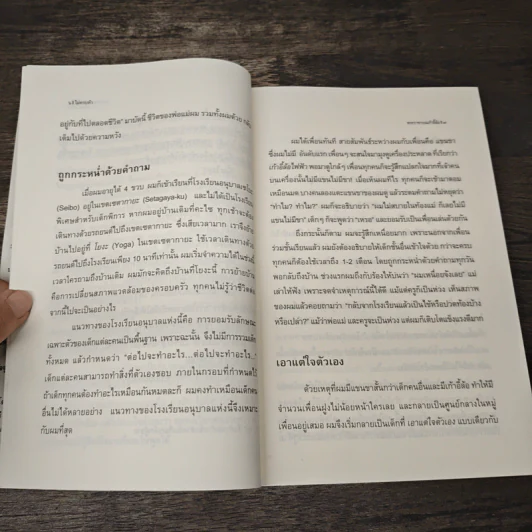 อยู่กับที่ไปตลอดชีวิต" มาบัดนี้ ชีวิตของพ่อแม่ผม รวมทั้งผมด้วย
เต็มไปด้วยความหวัง
ถูกกระหน่ำด้วยคำถาม
เมื่อผมอายุได้ 4 ขวบ ผมก็เข้าเรียนที่โรงเรียนอนุบาลเซโบ
(Seibo) อยู่ในเขตเซตากายะ (Setagaya-ku) และไม่ได้เป็นโรงเรียน
พิเศษสำหรับเด็กพิการ หากผมอยู่บ้านเดิมที่คะไซ ทุกเช้าจะต้อง
เดินทางด้วยรถยนต์ไปเขตเซตากายะ ซึ่งเสียเวลามาก เราจึงย้าย
บ้านไปอยู่ที่ โยงะ (Yoga) ในเขตเซตากายะ ใช้เวลาเดินทางด้วย
รถยนต์ไปถึงโรงเรียนเพียง 10 นาทีเท่านั้น ผมเริ่มจำความได้ในช่วง
เวลาใครถามถึงบ้านเดิม ผมมักก็จะคิดถึงบ้านที่โยงะนี้ การย้ายบ้าน
คือการเปลี่ยนสภาพแวดล้อมของครอบครัว ทุกคนไม่รู้ว่าชีวิต
จากนี้ไปจะเป็นอย่างไร
แนวทางของโรงเรียนอนุบาลแห่งนี้คือ การยอมรับลักษณะ
เฉพาะตัวของเด็กแต่ละคนเป็นพื้นฐาน เพราะฉะนั้น จึงไม่มีการรวมเด็ก
ทั้งหมด แล้วกำหนดว่า "ต่อไปจะทำอะไร...ต่อไปจะทำอะไร"
เด็กแต่ละคนสามารถทำสิ่งที่ตัวเองชอบ ภายในกรอบที่กำหนดไว้
ถ้าเด็กทุกคนต้องทำอะไรเหมือนกันหมดละก็ ผมคงทำเหมือนเด็กคน
อื่นไม่ได้หลายอย่าง แนวทางของโรงเรียนอนุบาลแห่งนี้จึงเหมาะ
กับผมที่สุด
ผมได้เพื่อนทันที สายสัมพันธ์ระหว่างผมกับเพื่อนคือ แขนขา
ซึ่งผมไม่มี อันดับแรก เพื่อนๆ จะสนใจมามุงดูเครื่องประหลาด ที่เรียกว่า
เก้าอี้ล้อไฟฟ้า พอมาดูใกล้ๆ เพื่อนทุกคนก็จะรู้สึกแปลกในมากที่เจ้าคน
บนเครื่องนั้นไม่มีแขนไม่มีขา เมื่อเห็นผมทีไร ทุกคนก็จะเข้ามาตอม
เหมือนมด บางคนลองแตะแขนขาของผมดู แล้วระดมคำถามไม่หยุดว่า
"ทำไม? ทำไม?" ผมก็จะอธิบายว่า "ผมไม่สบายในท้องแม่ ก็เลยไม่มี
แขนไม่มีขา" เด็กๆ ก็จะพูดว่า "เหรอ" และยอมรับเป็นเพื่อนเล่นด้วยกัน
ถึงกระนั้นก็ตาม ผมจะรู้สึกเหนื่อยมาก เพราะนอกจากเพื่อน
ร่วมชั้นเรียนแล้ว ผมยังต้องอธิบายให้เด็กชั้นอื่นเข้าใจด้วย กว่าจะครบ
ทุกคนก็ต้องใช้เวลาถึง 1-2 เดือน โดยถูกกระหน่ำด้วยคำถามทุกวัน
พอกลับถึงบ้าน ช่วงแรกผมถึงกับร้องให้บ่นว่า "ผมเหนื่อยจังเลย" แม่
เล่าให้ฟัง เพราะจดจำเหตุการณ์นี้ได้ดี แม้แต่ครูก็เป็นห่วง เห็นสภาพ
ของผมแล้วคอยถามว่า "กลับจากโรงเรียนแล้วเป็นไข้หรือปวดท้องบ้าง
หรือเปล่า?" แม้ว่าพ่อแม่ และครูจะเป็นห่วง แต่ผมก็เติบโตแข็งแรงดีมาก
เอาแต่ใจตัวเอง
ด้วยเหตุที่ผมมีแขนขาสั้นกว่าเด็กคนอื่นและมีเก้าอี้ล้อ ทำให้มี
จำนวนเพื่อนฝูงไม่น้อยหน้าใครเลย และกลายเป็นศูนย์กลางในหมู่
เพื่อนอยู่เสมอ ผมจึงเริ่มกลายเป็นเด็กที่ เอาแต่ใจตัวเอง แบบเดียวกับ